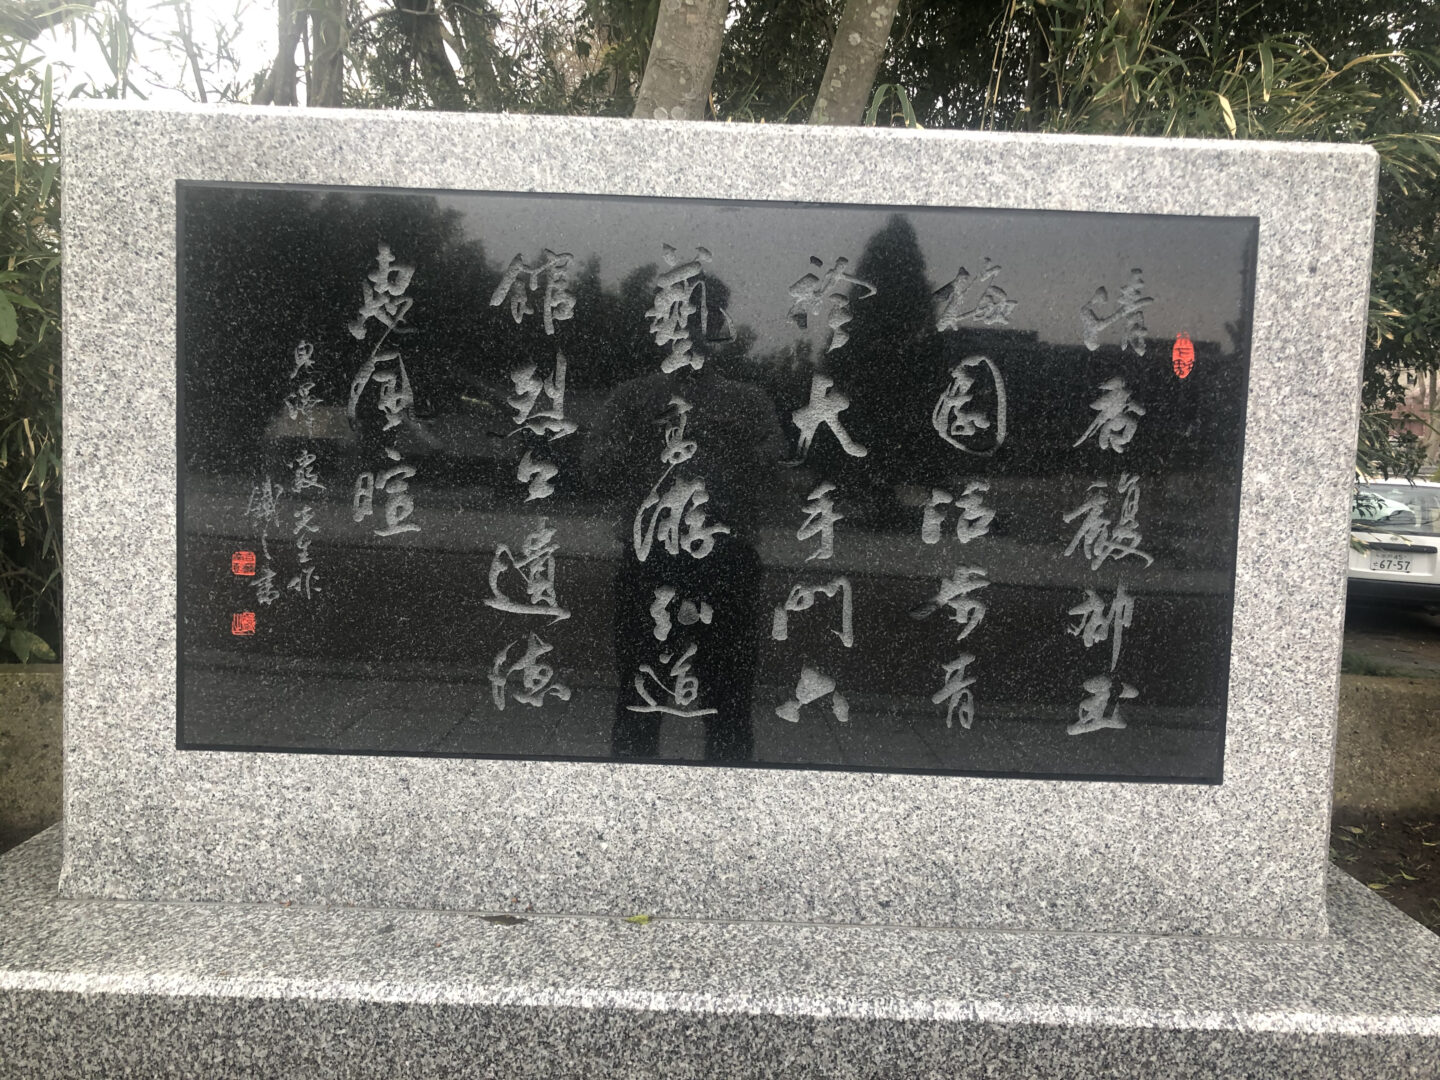 清香馥郁玉
梅園闊歩青
衿大手門六
藝高游弘道
館烈公遺徳
恵風暄
先生作
書
67-57